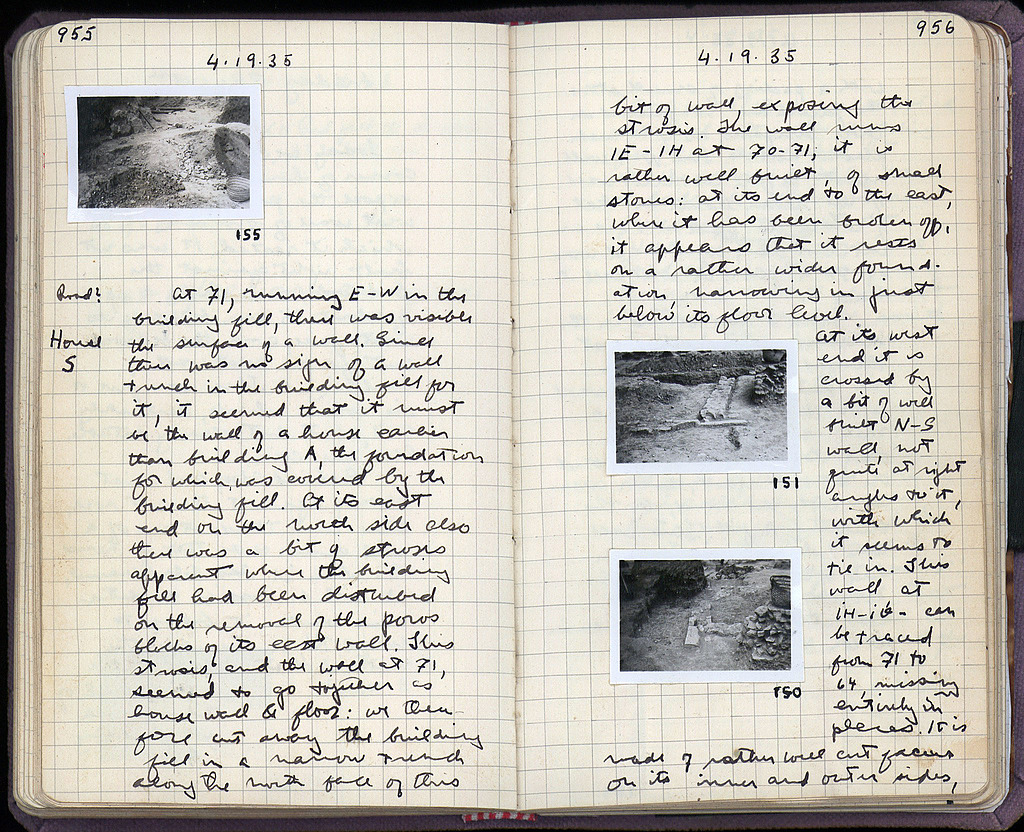 955
4.19.35
155
Road?
House
S
at 71, running E-W in the
building fill, there was visible
the surface of a wall. Since
there was no sign of a wall
trench in the building fill for
it, it seemed that it must
be the wall of a house earlier
than building A, the foundation
for which was covered by the
building fill. At its east
end on the north side also
there was a bit of strosis
apparent where the building
fill had been disturbed
on the removal of the poros
blocks of its east wall. This
strosis, and the wall at 71,
seemed to go together as
house wall & floor: we there-
fore cut away the building
fill in a narrow trench
along the north face of this
956
4.19.35
bit of wall, exposing the
strosis. The wall runs
1E-1H at 70-71; it is
rather well built, of small
stones: at its end to the east,
where it has been broken off,
it appears that it rests
on a rather wider found-
ation, narrowing in just
below its floor level.
At its west
end it is
crossed by
a bit of well
built N-S
wall, not
quite at right
angles to it,
with which
it seems to
tie in. This
wall at
can
be traced
from 71 to
64, missing
entirely in
places. It is
made of rather well cut faces
on its inner and outer sides,
151
150